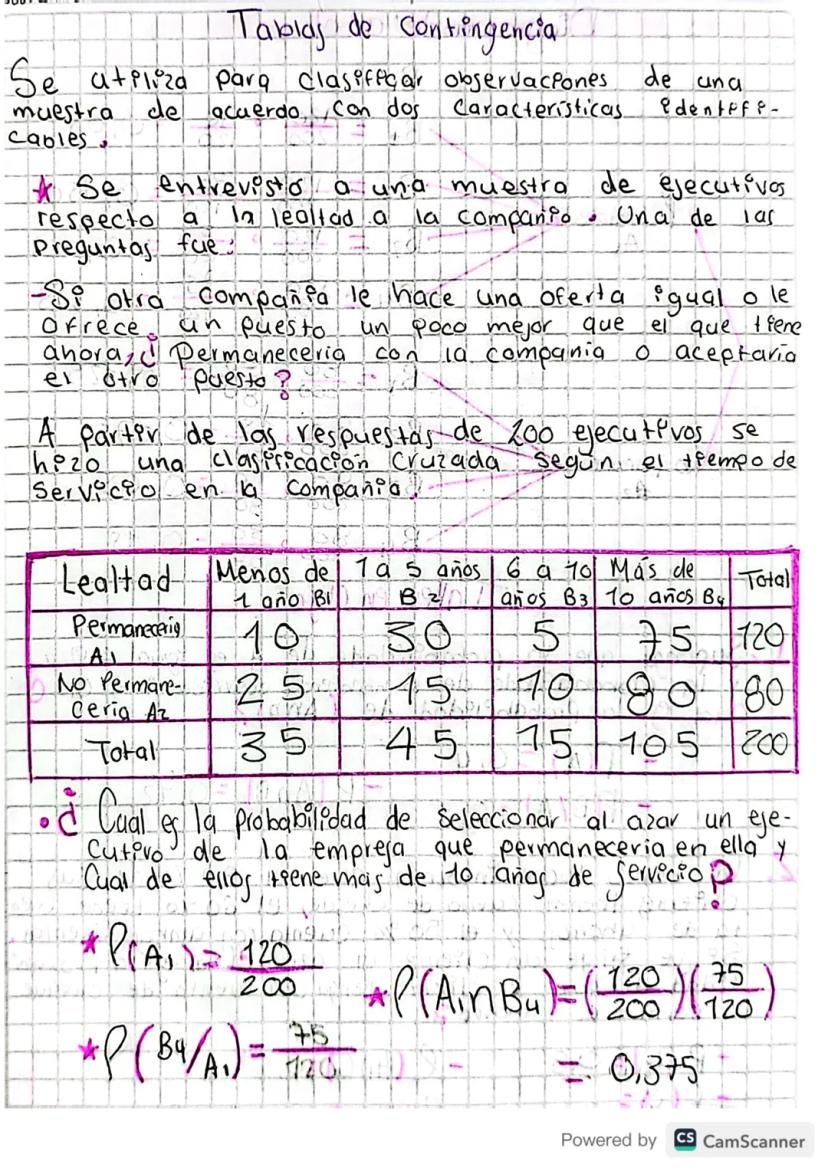 Tablas de Contingencia
Se utiliza para clasificar observaciones de una
muestra de acuerdo con dos características identifi-
cables.
★ Se entrevisto a una muestra de ejecutivos
respecto a la lealtad a la compañia. Una de las
preguntas fue:
-Si otra compañia le hace una oferta igual o le
ofrece un puesto un poco mejor que el que tiene
ahora, ¿ Permaneceria con la compania o aceptaria
el otro puesto?
A partir de las respuestas de 200 ejecutivos se
hizo una clasificación cruzada según el tiempo de
servicio en la compañia.
Lealtad Menos de 1 año B1 1 a 5 años B2 6 a 10 años B3 Más de 10 años B4 Total
Permaneceria A1 10 30 5 75 120
No Permane-ceria A2 25 15 10 80 80
Total 35 45 15 105 200
• ¿ Cual es la probabilidad de seleccionar al azar un eje-
cutivo de la empresa que permaneceria en ella y
Cual de ellos tiene mas de 10 años de servicio?
★ P(A1) = 120/200
★ P(B4/A1) = 75/120
★ P(A1∩B4) = (120/200)(75/120)
= 0,375
Powered by CS CamScanner